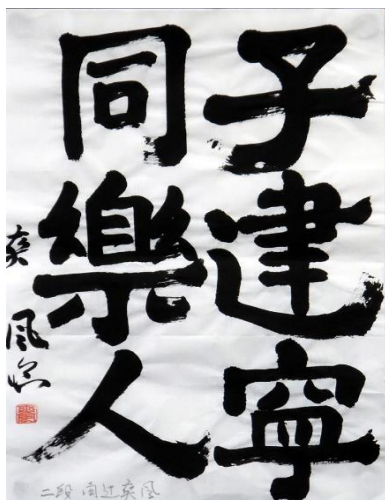 子建寧
同樂人
爽風臨
二段 南辻爽風